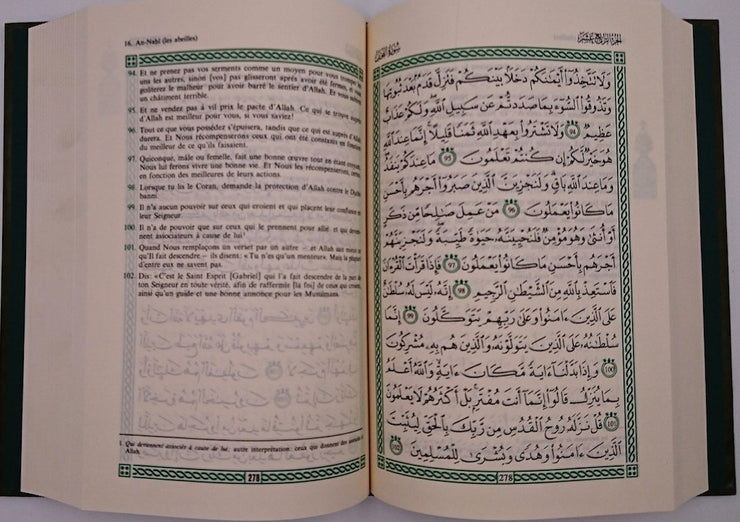 16. An-Nahl (les abeilles)
94. Et ne prenez pas vos serments comme un moyen pour vous tromper
les uns les autres, sinon [vos] pas glisseront après avoir été fermes, et vous
goûterez le malheur pour avoir barré le sentier d'Allah. Et vous subirez
un châtiment terrible.
95. Et ne vendez pas à vil prix le pacte d'Allah. Ce qui se trouve auprès
d'Allah est meilleur pour vous, si vous saviez!
96. Tout ce que vous possédez s'épuisera, tandis que ce qui est auprès d'Allah
durera. Et Nous récompenserons ceux qui ont été constants en fonction
du meilleur de ce qu'ils faisaient.
97. Quiconque, mâle ou femelle, fait une bonne œuvre tout en étant croyant,
Nous lui ferons vivre une bonne vie. Et Nous les récompenserons, certes,
en fonction des meilleures de leurs actions.
98. Lorsque tu lis le Coran, demande la protection d'Allah contre le Diable
banni.
99. Il n'a aucun pouvoir sur ceux qui croient et qui placent leur confiance en
leur Seigneur.
100. Il n'a de pouvoir que sur ceux qui le prennent pour allié et qui deviennent
nent associateurs à cause de lui¹
101. Quand Nous remplaçons un verset par un autre – et Allah sait mieux ce
qu'Il fait descendre – ils disent: « Tu n'es qu'un menteur». Mais la plupart
d'entre eux ne savent pas.
102. Dis: «C'est le Saint Esprit [Gabriel] qui l'a fait descendre de la part de
ton Seigneur en toute vérité, afin de raffermir [la foi] de ceux qui croient,
ainsi qu'un guide et une bonne annonce pour les Musulmans.
1. Qui deviennent associés à cause de lui: autre interprétation: ceux qui donnent des associés à
Allah.
278
سُورَةُ النَّحْلِ
الجزء الرابع عشر
وَلَا تَتَّخِذُوٓا۟ أَيْمَٰنَكُمْ دَخَلًۢا بَيْنَكُمْ فَتَزِلَّ قَدَمٌۢ بَعْدَ ثُبُوتِهَا
وَتَذُوقُوا۟ ٱلسُّوٓءَ بِمَا صَدَدتُّمْ عَن سَبِيلِ ٱللَّهِ وَلَكُمْ عَذَابٌ
عَظِيمٌ ٩٤ وَلَا تَشْتَرُوا۟ بِعَهْدِ ٱللَّهِ ثَمَنًا قَلِيلًا إِنَّمَا عِندَ ٱللَّهِ
هُوَ خَيْرٌ لَّكُمْ إِن كُنتُمْ تَعْلَمُونَ ٩٥ مَا عِندَكُمْ يَنفَدُ
وَمَا عِندَ ٱللَّهِ بَاقٍ وَلَنَجْزِيَنَّ ٱلَّذِينَ صَبَرُوٓا۟ أَجْرَهُم بِأَحْسَنِ
مَا كَانُوا۟ يَعْمَلُونَ ٩٦ مَنْ عَمِلَ صَٰلِحًا مِّن ذَكَرٍ
أَوْ أُنثَىٰ وَهُوَ مُؤْمِنٌ فَلَنُحْيِيَنَّهُۥ حَيَوٰةً طَيِّبَةً وَلَنَجْزِيَنَّهُمْ
أَجْرَهُم بِأَحْسَنِ مَا كَانُوا۟ يَعْمَلُونَ ٩٧ فَإِذَا قَرَأْتَ ٱلْقُرْءَانَ
فَٱسْتَعِذْ بِٱللَّهِ مِنَ ٱلشَّيْطَٰنِ ٱلرَّجِيمِ ٩٨ إِنَّهُۥ لَيْسَ لَهُۥ سُلْطَٰنٌ
عَلَى ٱلَّذِينَ ءَامَنُوا۟ وَعَلَىٰ رَبِّهِمْ يَتَوَكَّلُونَ ٩٩ إِنَّمَا
سُلْطَٰنُهُۥ عَلَى ٱلَّذِينَ يَتَوَلَّوْنَهُۥ وَٱلَّذِينَ هُم بِهِۦ مُشْرِكُونَ
١٠٠ وَإِذَا بَدَّلْنَآ ءَايَةً مَّكَانَ ءَايَةٍ وَٱللَّهُ أَعْلَمُ
بِمَا يُنَزِّلُ قَالُوٓا۟ إِنَّمَآ أَنتَ مُفْتَرٍۭ بَلْ أَكْثَرُهُمْ لَا يَعْلَمُونَ
١٠١ قُلْ نَزَّلَهُۥ رُوحُ ٱلْقُدُسِ مِن رَّبِّكَ بِٱلْحَقِّ لِيُثَبِّتَ
ٱلَّذِينَ ءَامَنُوا۟ وَهُدًى وَبُشْرَىٰ لِلْمُسْلِمِينَ ١٠٢
278